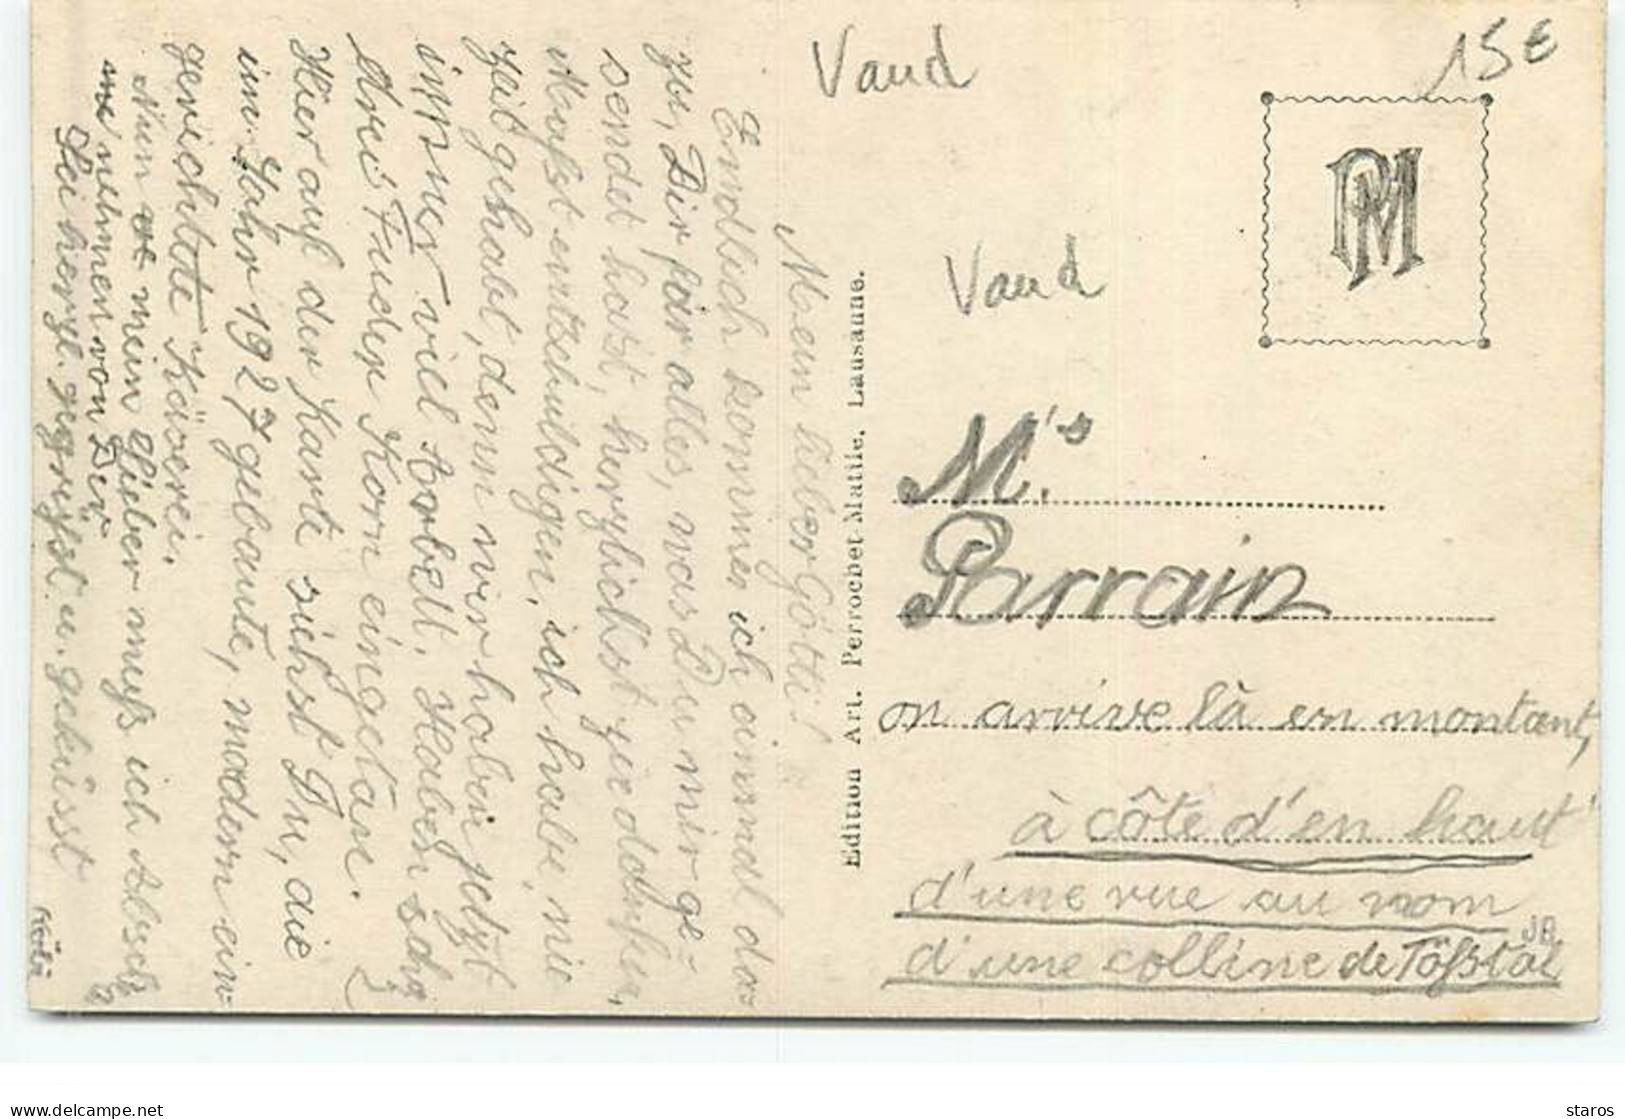 Mein lieber Götti!
Endlich komme ich einmal da-
zu, Dir für alles, was Du mir ge-
sendet hast, herzlichst zu danken,
Mußt entschuldigen, ich habe nie
Zeit gehabt, denn wir haben jetzt
immer viel Arbeit. Haben schon
drei Fuder Korn eingetan.
Hier auf der Karte siehst Du, die
im Jahr 1927 gebaute, modern ein-
gerichtete Käserei.
Nun mein lieber muß ich Absch
nehmen von Dir.
Sei herzl. gegrüsst u. geküsst
Edition Art. Perrochet-Matile, Lausanne.
Vaud
15€
PM
Vaud
M.rs
Parrain
on arrive là en montant,
à côté d'en haut
d'une vue au nom
d'une colline de Tößtal
JB
delcampe.net
staros